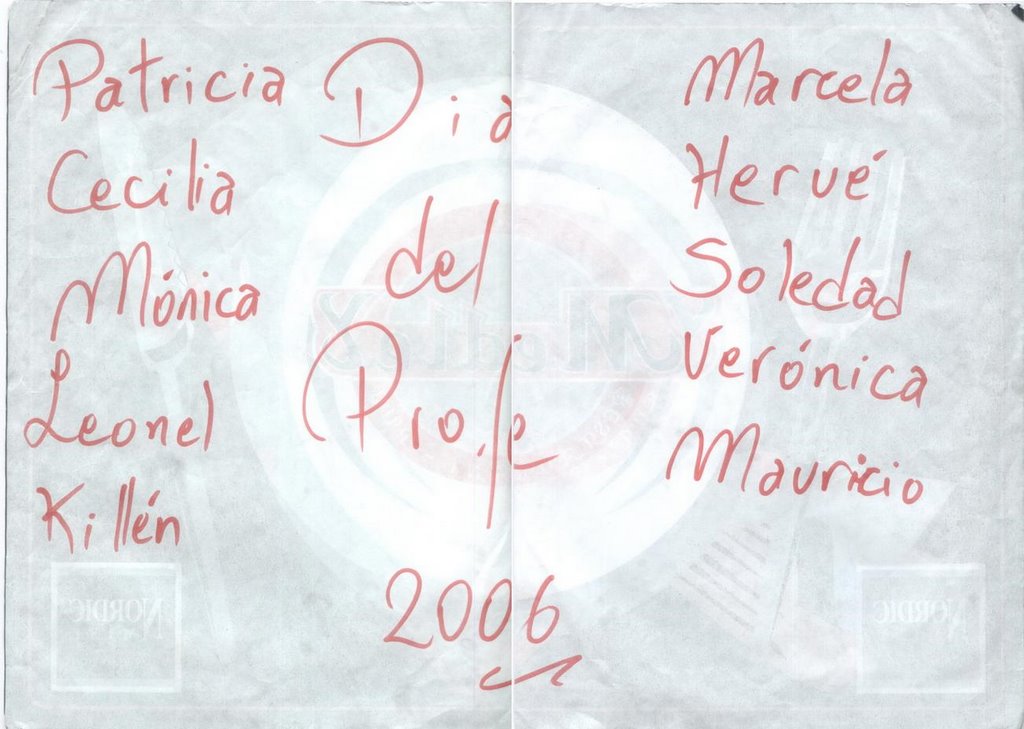 Patricia
Cecilia
Mónica
Leonel
Killén
Día
del
Profe
2006
Marcela
Hervé
Soledad
Verónica
Mauricio
NORDIC
NORDIC